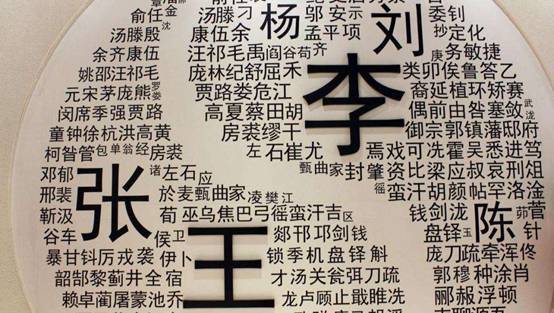 俞任金 汤滕 杨 邬安示 刘 委钊
汤滕殷 康伍余 孟平项 抄定化
余齐康伍 汪祁毛禹阎谷荀齐 庚务敏捷
姚邵汪祁毛 庞林纪舒屈禾 李 类卯俟鲁答乙
元宋茅庞熊 罗娄 贾路娄危江 裔延植环矫赛
闵席季强贾路 高夏蔡田胡 偶前由昝塞敛 武 泷
童钟徐杭洪高黄 房裘缪干 御宗郭镇藩邸府
柯昝管包单翁经房裘 左石崔尤 焉戏可冼霍吴悉进笃
邓郁 张 诸左石应 甄曲家 封肇资比梁应叔哀刑俎
邢裴 於麦甄曲家凌樊江 徭蛮汗胡颜帖罕洛淦
靳汲 荀巫乌焦巴弓徭蛮汗吉区 钱剑泷 陈 茆菅
谷车 侯卫 王 郯邗邛剑钱 盘铎玉 针
暴甘钭厉戎袭伊卜 锁季机盘铎斛 庞刀疏牵浑佟
韶郜黎蓟井全宿 才汤关瓮弭刀疏 郭穆种涂肖
赖卓蔺屠蒙池乔 龙卢顾止戢睢冼 郦郝浮顿